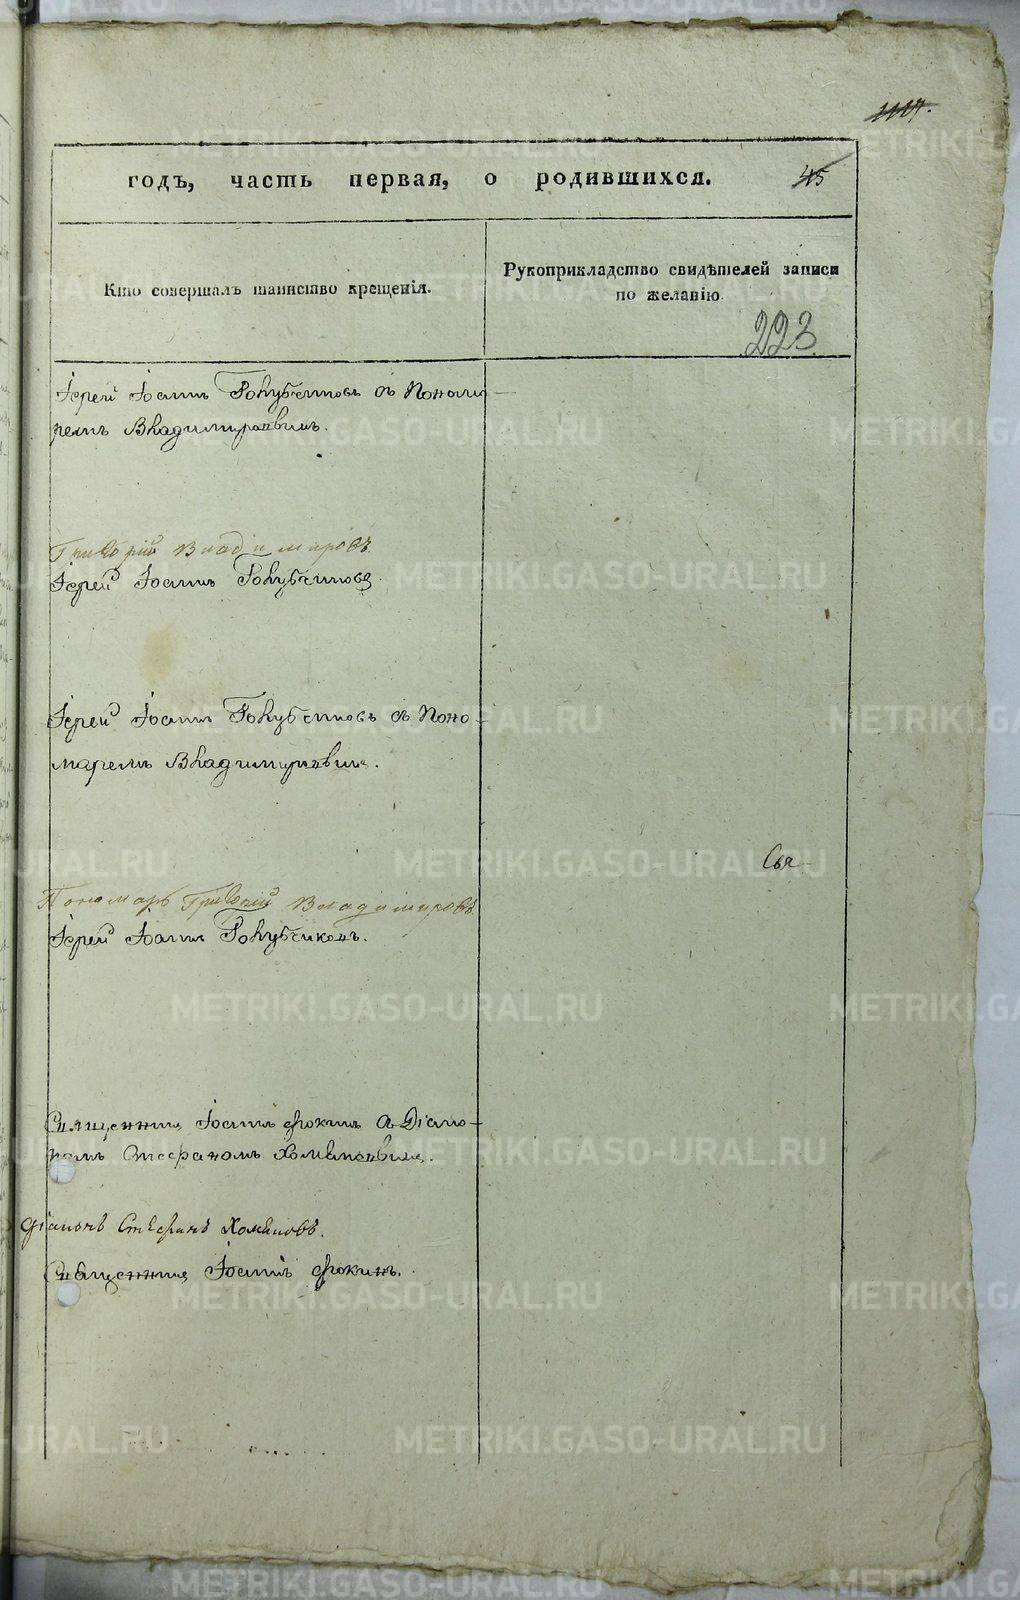 1117.
годъ, часть первая, о родившихся. 45
Кто совершалъ таинство крещенія.
Рукоприкладство свидѣтелей записи
по желанію.
223
Іерей Іоаннъ Голубчиковъ съ Понома-
ремъ Владимировымъ.
Григорій Владимировъ
Іерей Іоаннъ Голубчиковъ.
Іерей Іоаннъ Голубчиковъ съ Поно-
маремъ Владимировымъ.
Пономарь Григорій Владимировъ
Іерей Іоаннъ Голубчиковъ.
Священникъ Іоаннъ Фокинъ съ Діако-
номъ Стефаномъ Хомяковымъ.
Діаконъ Стефанъ Хомяковъ.
Священникъ Іоаннъ Фокинъ.
METRIKI.GASO-URAL.RU